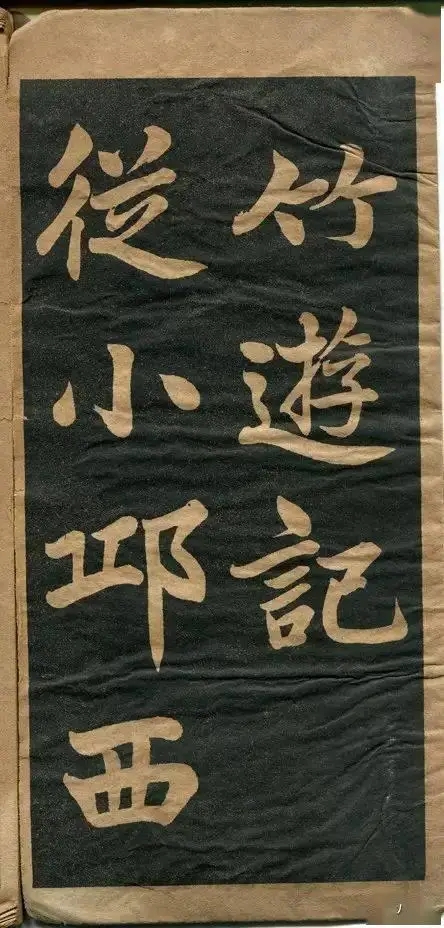 竹遊記
從小邱西